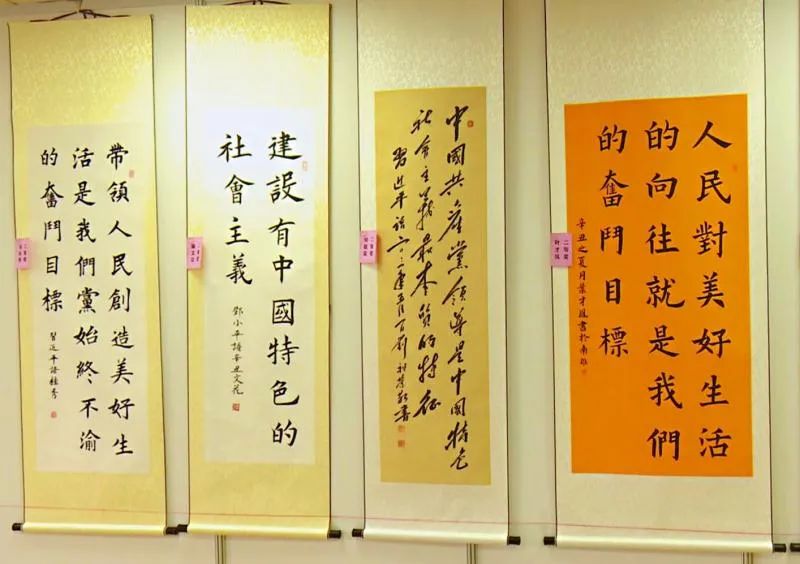 人民對美好生活
的向往就是我們
的奮鬥目標
辛丑之夏月葉才鳳書於南雄
二等獎
中國共產黨領導是中國特色
社會主義最本質的特征
習近平語
建設有中國特色的
社會主義
鄧小平語辛丑文花
帶領人民創造美好生
活是我們黨始終不渝
的奮鬥目標
習近平語桂秀
二等獎